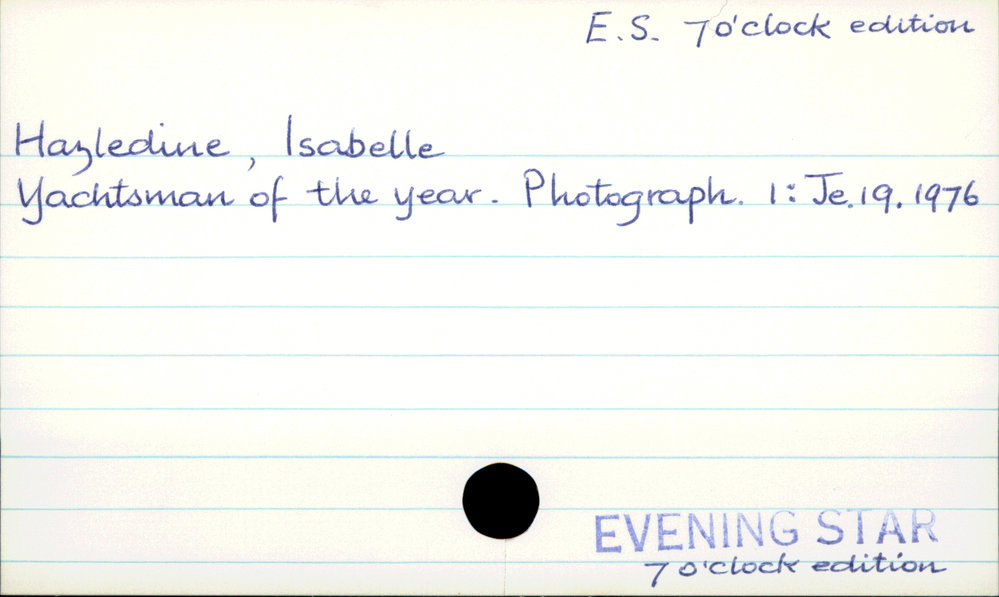 E.S. 7 o'clock edition
Hazledine, Isabelle
Yachtsman of the year. Photograph. 1: Je. 19. 1976
EVENING STAR
7 o'clock edition